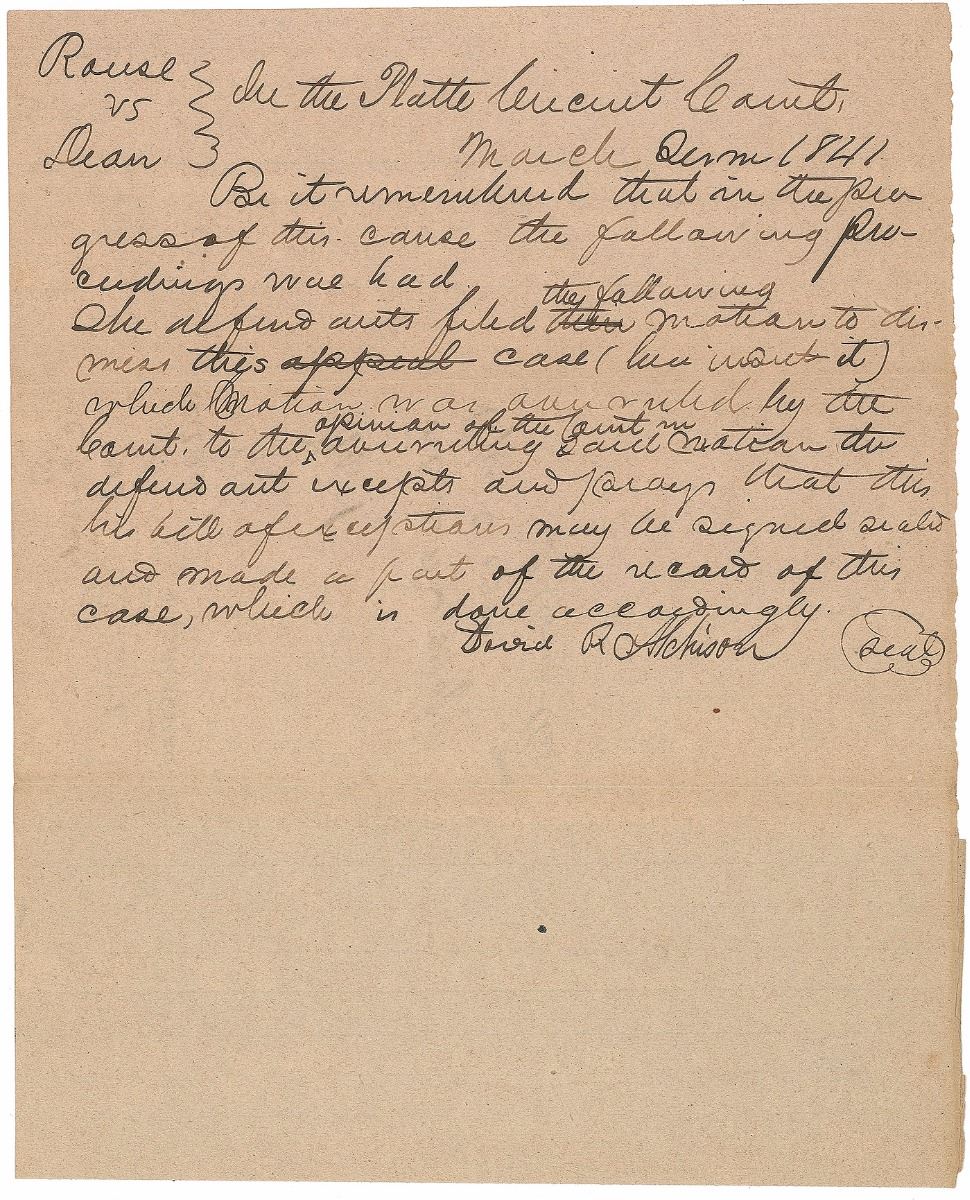 Rouse
vs
Dean
In the Platte Circuit Court,
March Term 1841
Be it remembered that in the pro-
gress of this cause the following pro-
ceedings was had.
the following
The defendants filed their motion to dis-
miss this appeal case (here insert it)
which motion was overruled by the
opinion of the Court in
Court. to the overruling said motion the
defendant excepts and prays that this
his bill of exceptions may be signed sealed
and made a part of the record of this
case, which is done accordingly.
David R Atchison (Seal)